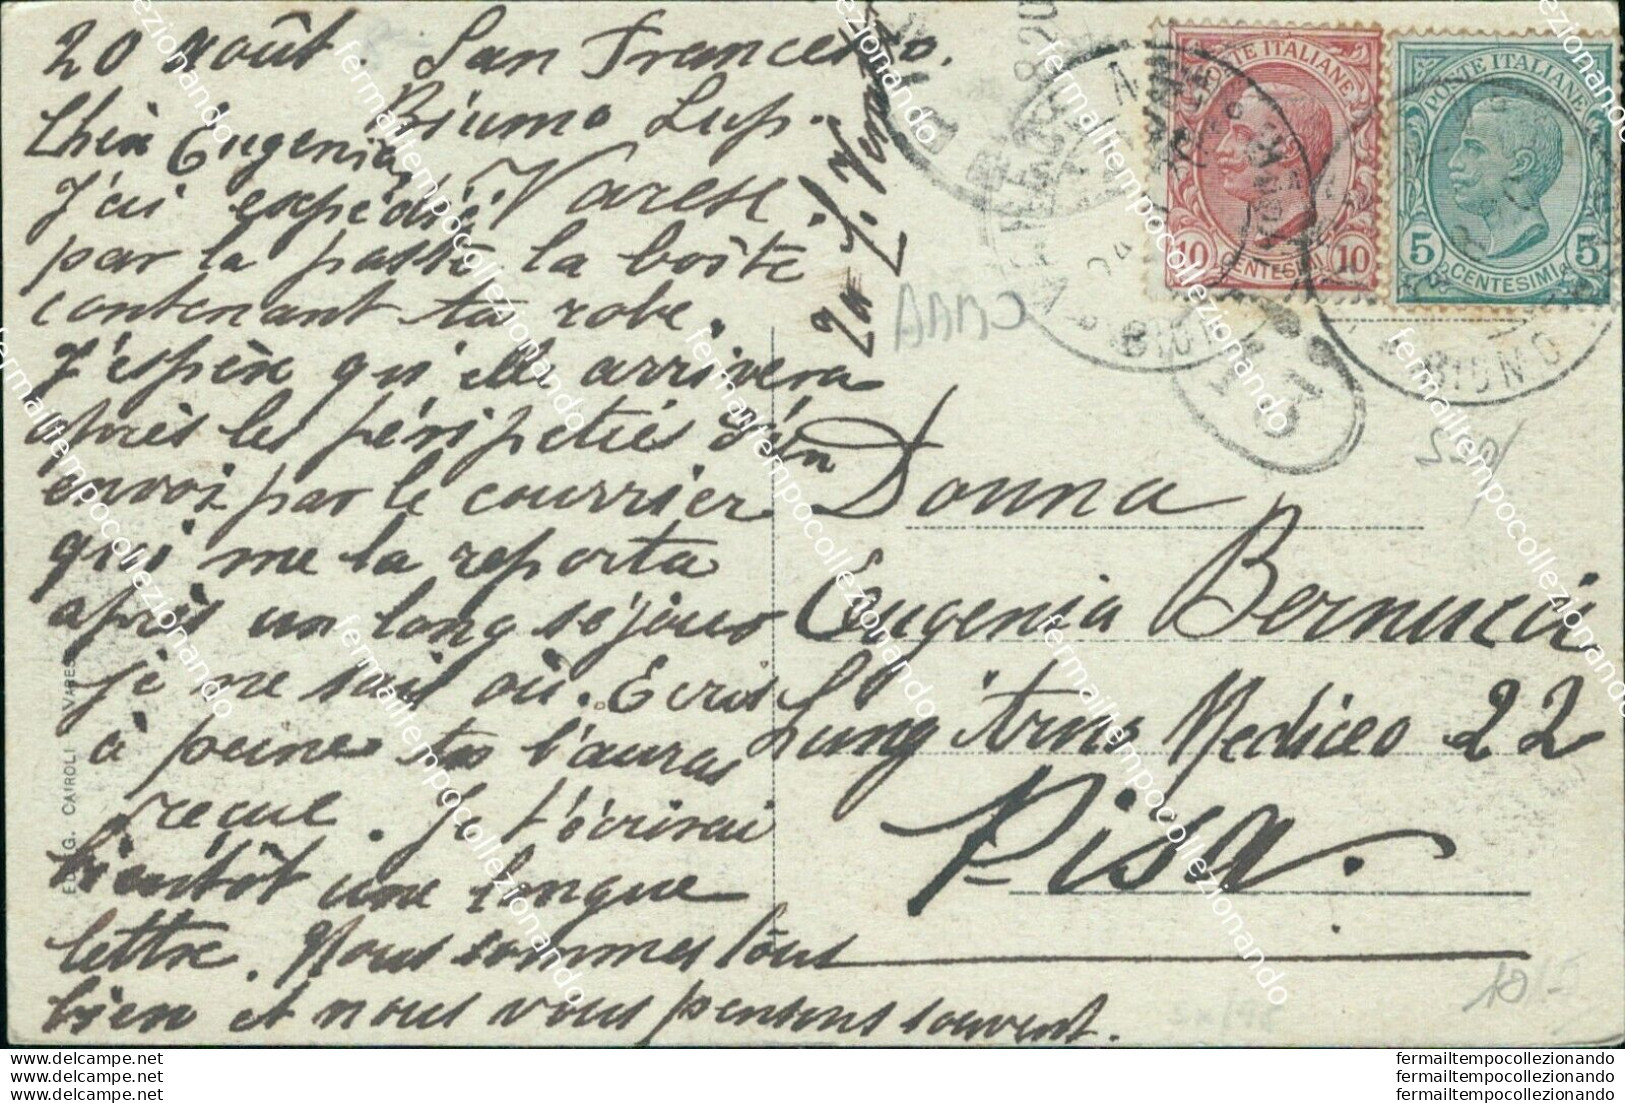 20 août. San Francesco.
Biumo Sup.
Varese.
Chère Eugenia,
J'ai expédié
par la poste la boîte
contenant ta robe.
J'espère qu'elle arrivera
après les péripéties d'un
envoi par le courrier
qui me la reporta
après un long séjour
je ne sais où. Ecris
à peine tu l'auras
reçue. Je t'écrirai
bientôt une longue
lettre. Nous sommes tous
bien et nous vous pensons souvent.
Donna
Eugenia Bernucci
Lung'Arno Mediceo 22
Pisa.
POSTE ITALIANE
10 CENTESIMI 10
POSTE ITALIANE
5 CENTESIMI 5
BIUMO
ED. G. CAIROLI VARESE
10/5
fermailtempocollezionando
fermailtempocollezionando
fermailtempocollezionando